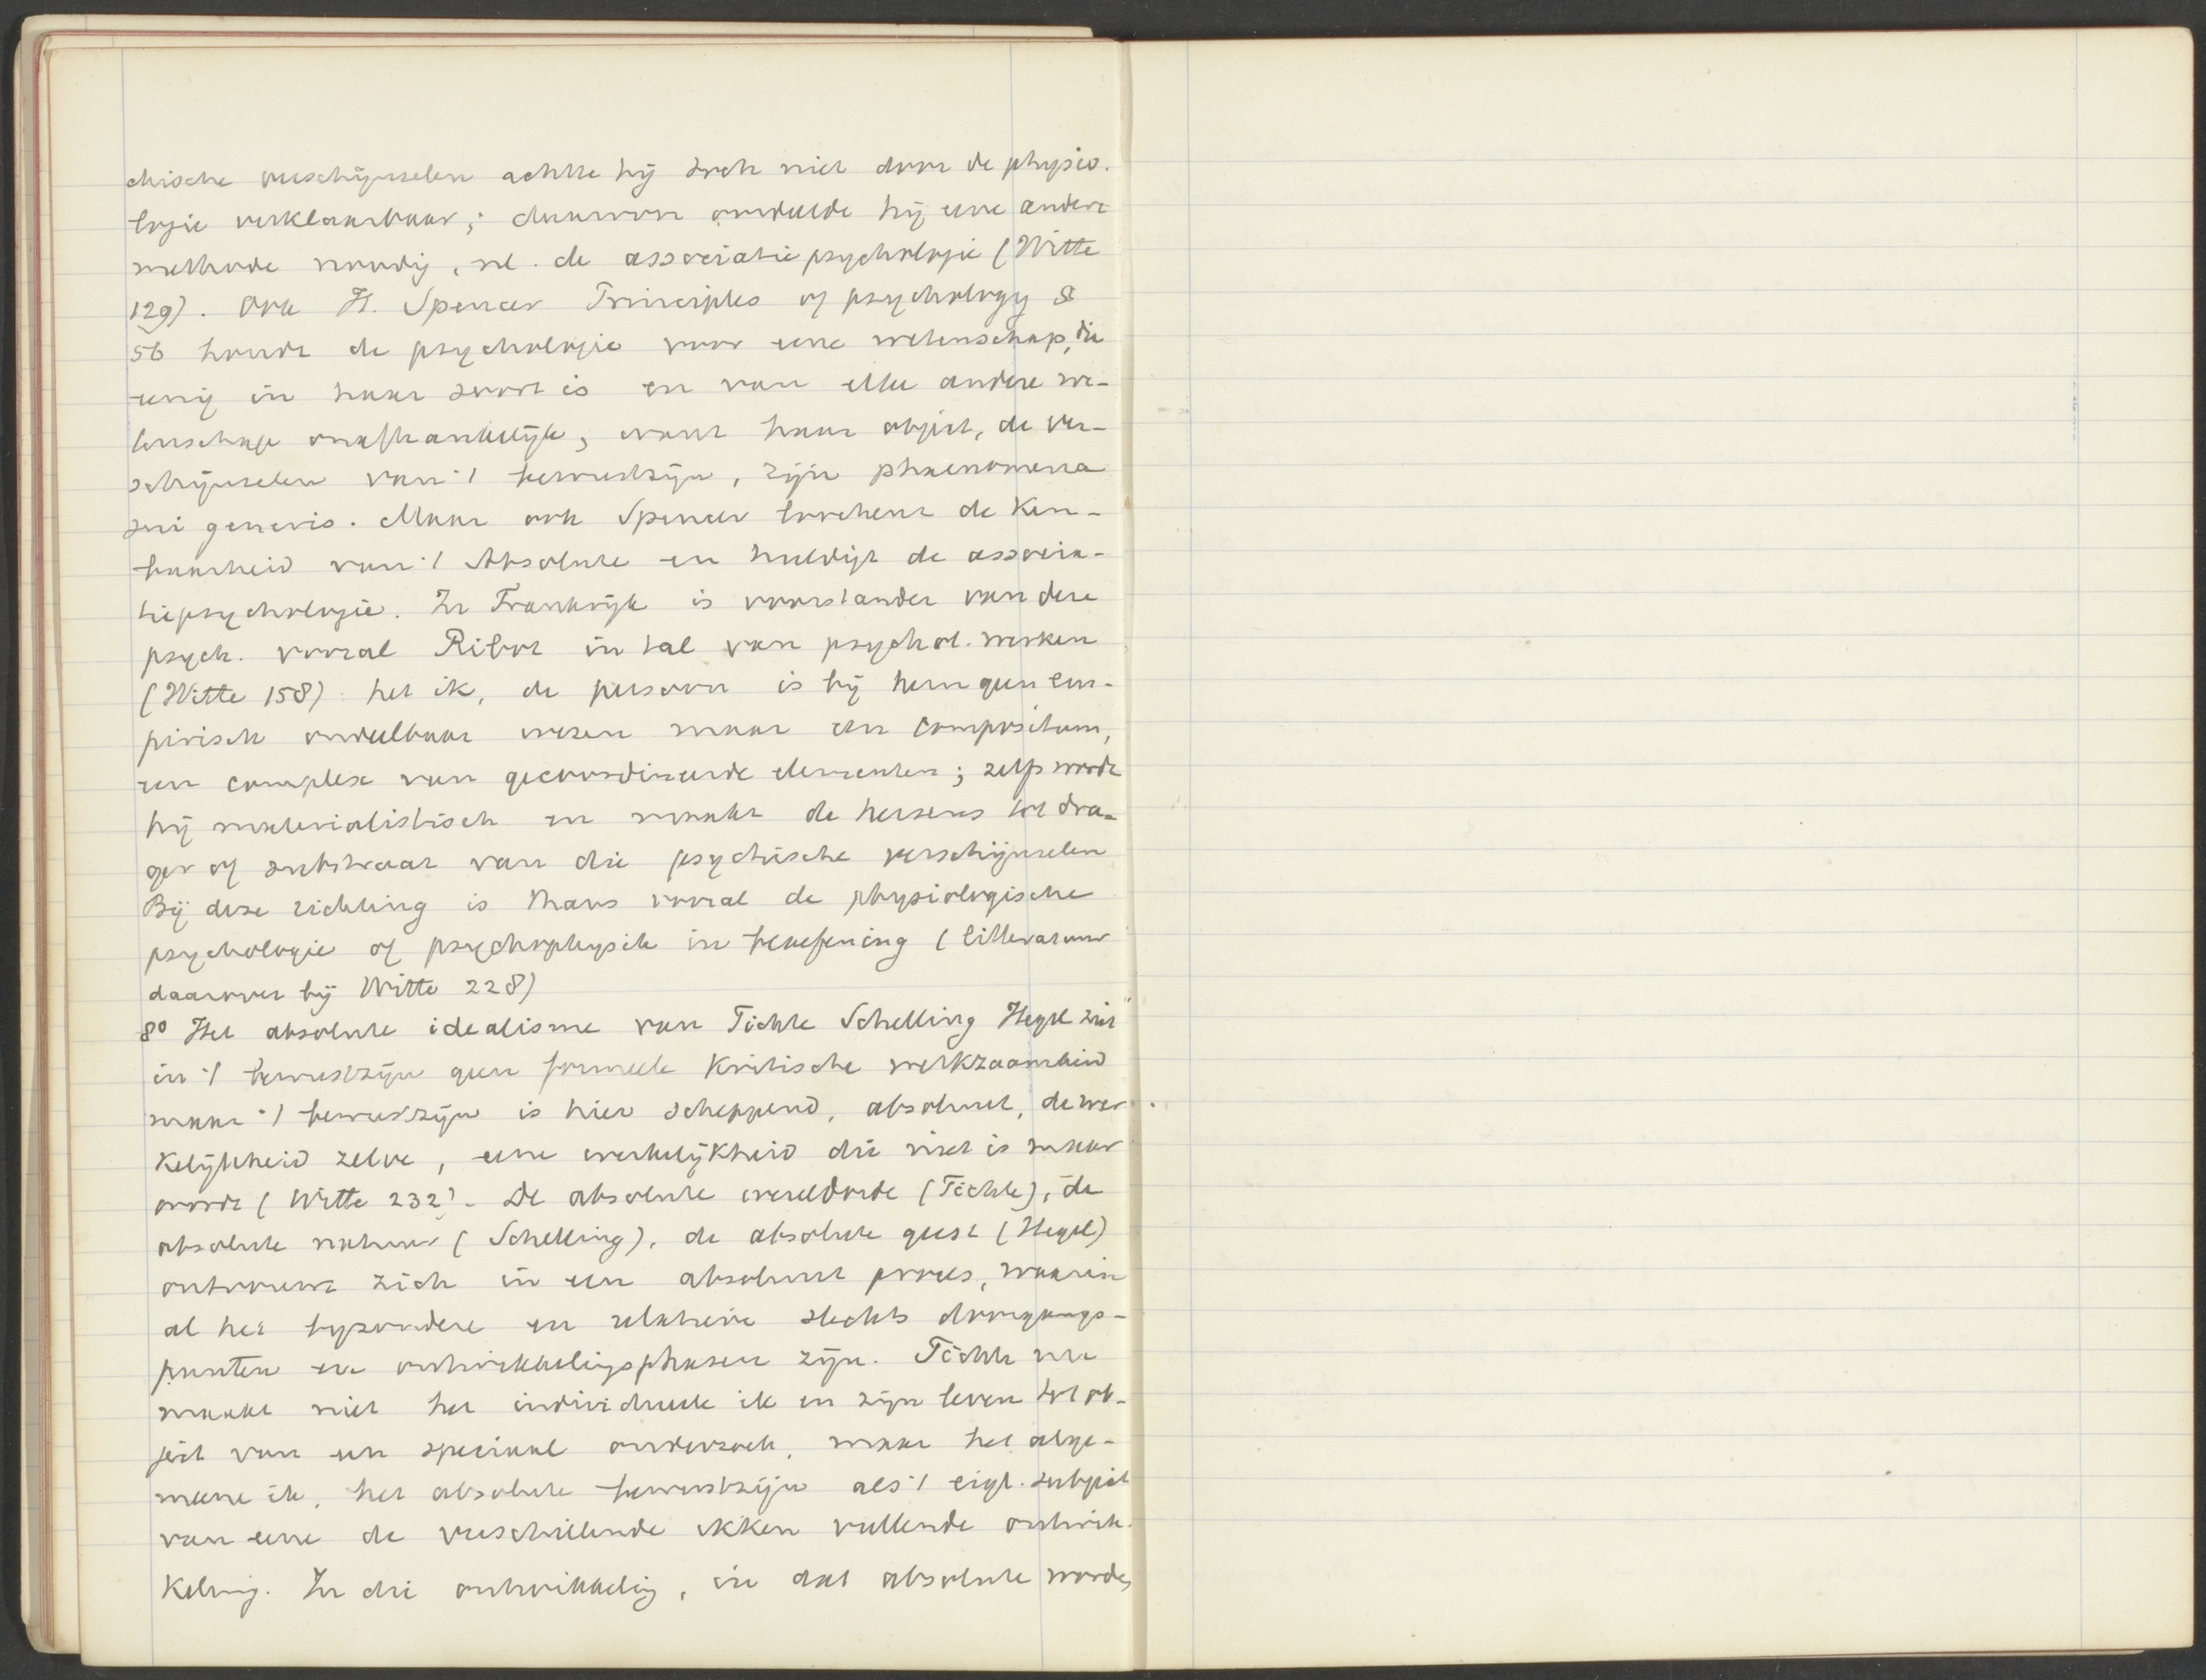 chische verschijnselen achtte hij toch niet door de physio-
logie verklaarbaar; daarvoor oordeelde hij eene andere
methode noodig, nl. de associatiepsychologie (Witte
129). Ook H. Spencer Principles of psychology §
56 houdt de psychologie voor eene wetenschap, die
eenig in haar soort is en van elke andere we-
tenschap onafhankelijk, want haar object, de ver-
schijnselen van 't bewustzijn, zijn phaenomena
sui generis. Maar ook Spencer loochent de ken-
baarheid van 't Absolute en huldigt de associa-
tiepsychologie. In Frankrijk is voorstander van deze
psych. vooral Ribot in tal van psychol. werken
(Witte 158) het ik, de persoon is bij hem geen em-
pirisch ondeelbaar wezen maar een compositum,
een complex van gecoordineerde elementen; zelfs wordt
hij materialistisch en maakt de hersens tot dra-
ger of substraat van die psychische verschijnselen
Bij deze richting is thans vooral de physiologische
psychologie of psychophysik in beoefening (litteratuur
daarover bij Witte 228)
8° Het absolute idealisme van Fichte Schelling Hegel ziet
in 't bewustzijn geen formeele kritische werkzaamheid
maar 't bewustzijn is hier scheppend, absoluut, de wer-
kelijkheid zelve, eene werkelijkheid die niet is maar
wordt (Witte 232). De absolute wereldorde (Fichte), de
absolute natuur (Schelling), de absolute geest (Hegel)
ontvouwt zich in een absoluut proces, waarin
al het byzondere en relatieve slechts doorgangs-
punten en ontwikkelingsphasen zijn. Fichte nu
maakt niet het individueele ik en zijn leven tot ob-
ject van een speciaal onderzoek, maar het alge-
meene ik, het absolute bewustzijn als 't eigl. subject
van eene de verschillende ikken vullende ontwik-
keling. In die ontwikkeling, in dat absolute worden